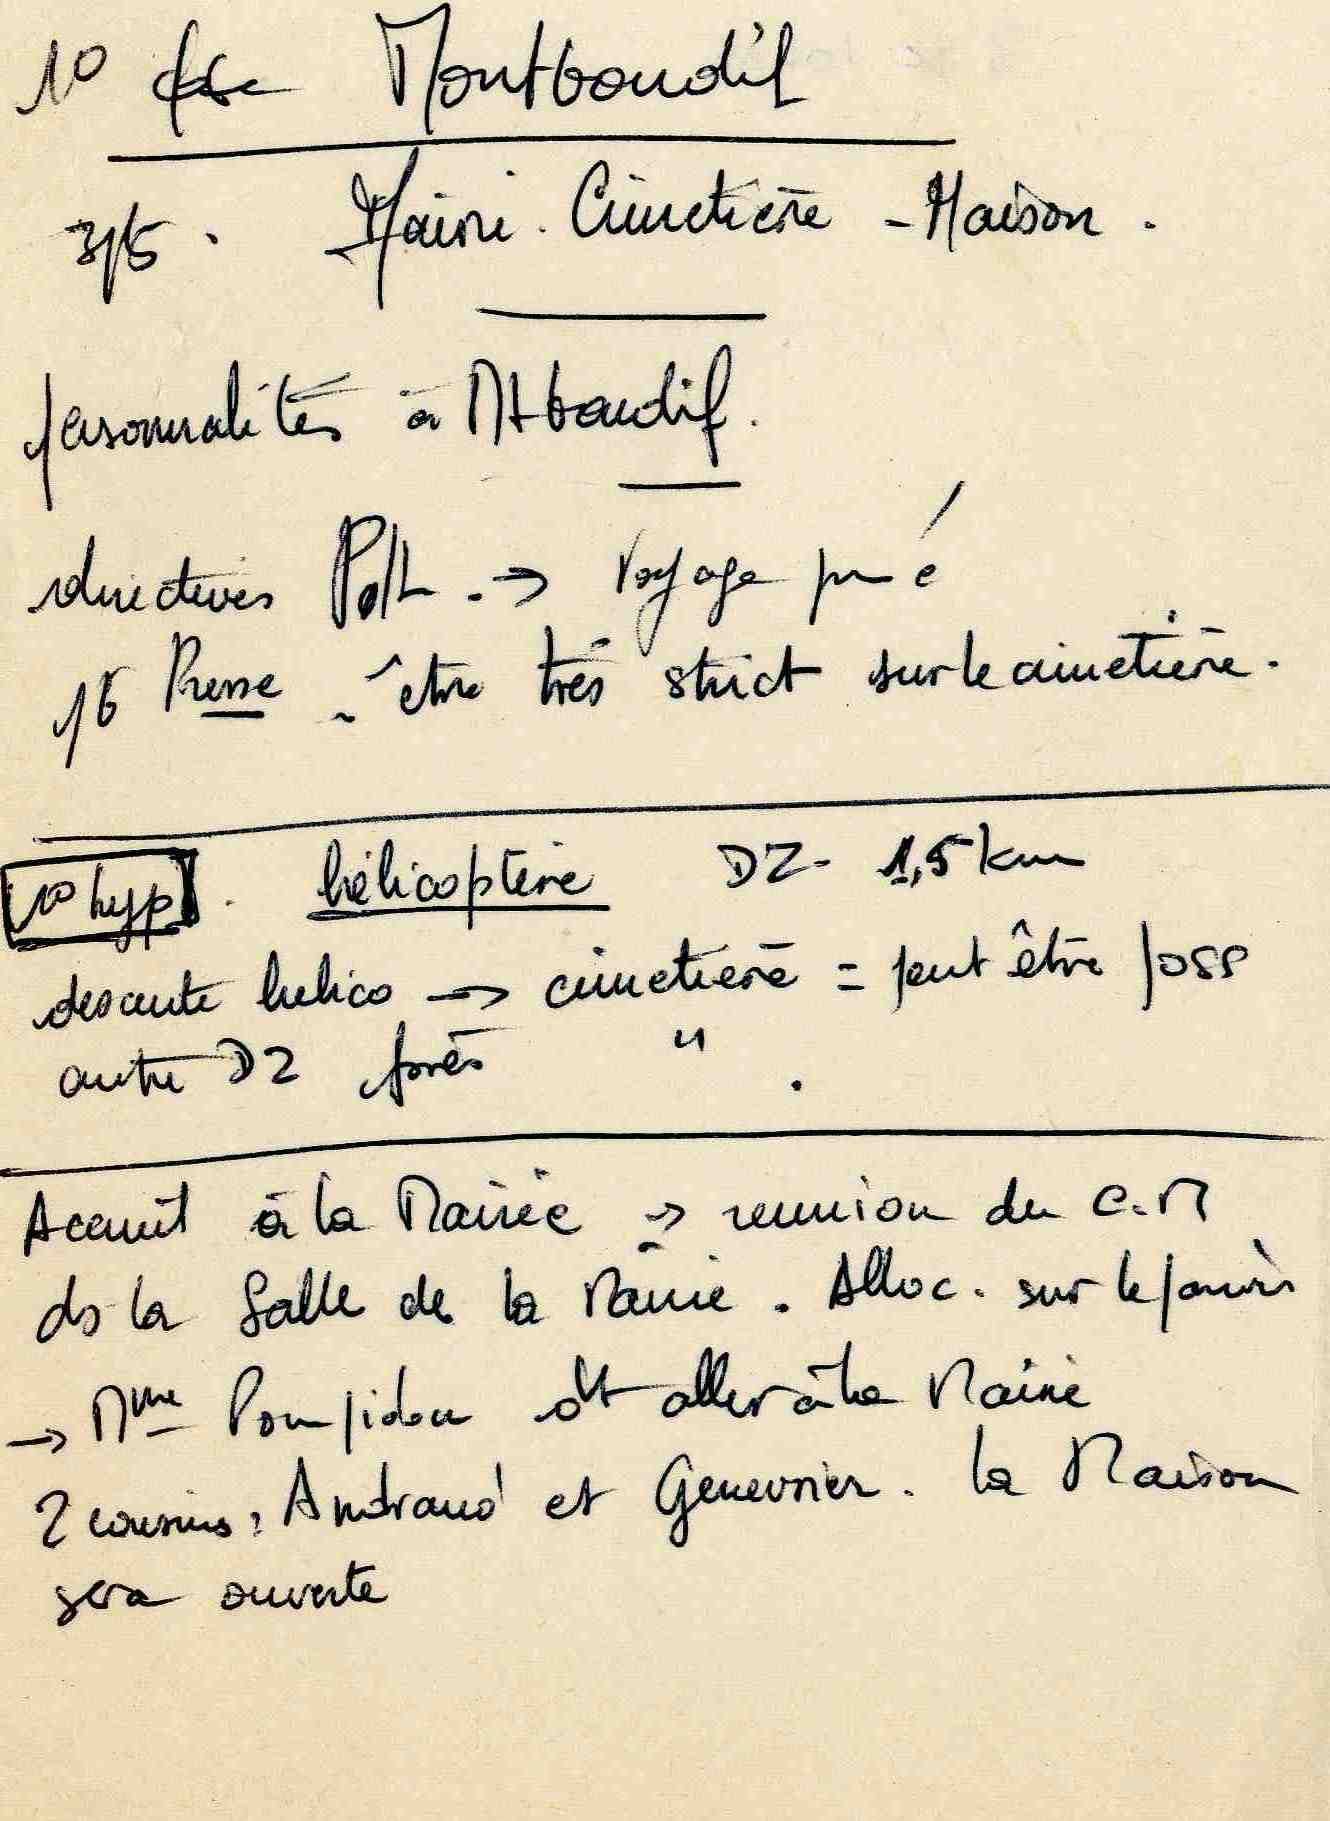 1° Montboudif
3/5. Mairie. Cimetière - Maison.
personnalités à Mtboudif.
directives → Voyage privé
Presse - être très strict sur le cimetière.
1° hyp. hélicoptère DZ - 1,5 km
descente hélico → cimetière = peut être poss
autre DZ près "
Accueil à la Mairie → reunion du C.M
ds la Salle de la Mairie. Alloc. sur le parvis
→ Mme Pompidou dt aller à la Mairie
2 cousins, Andraud et Genevrier. la Maison
sera ouverte